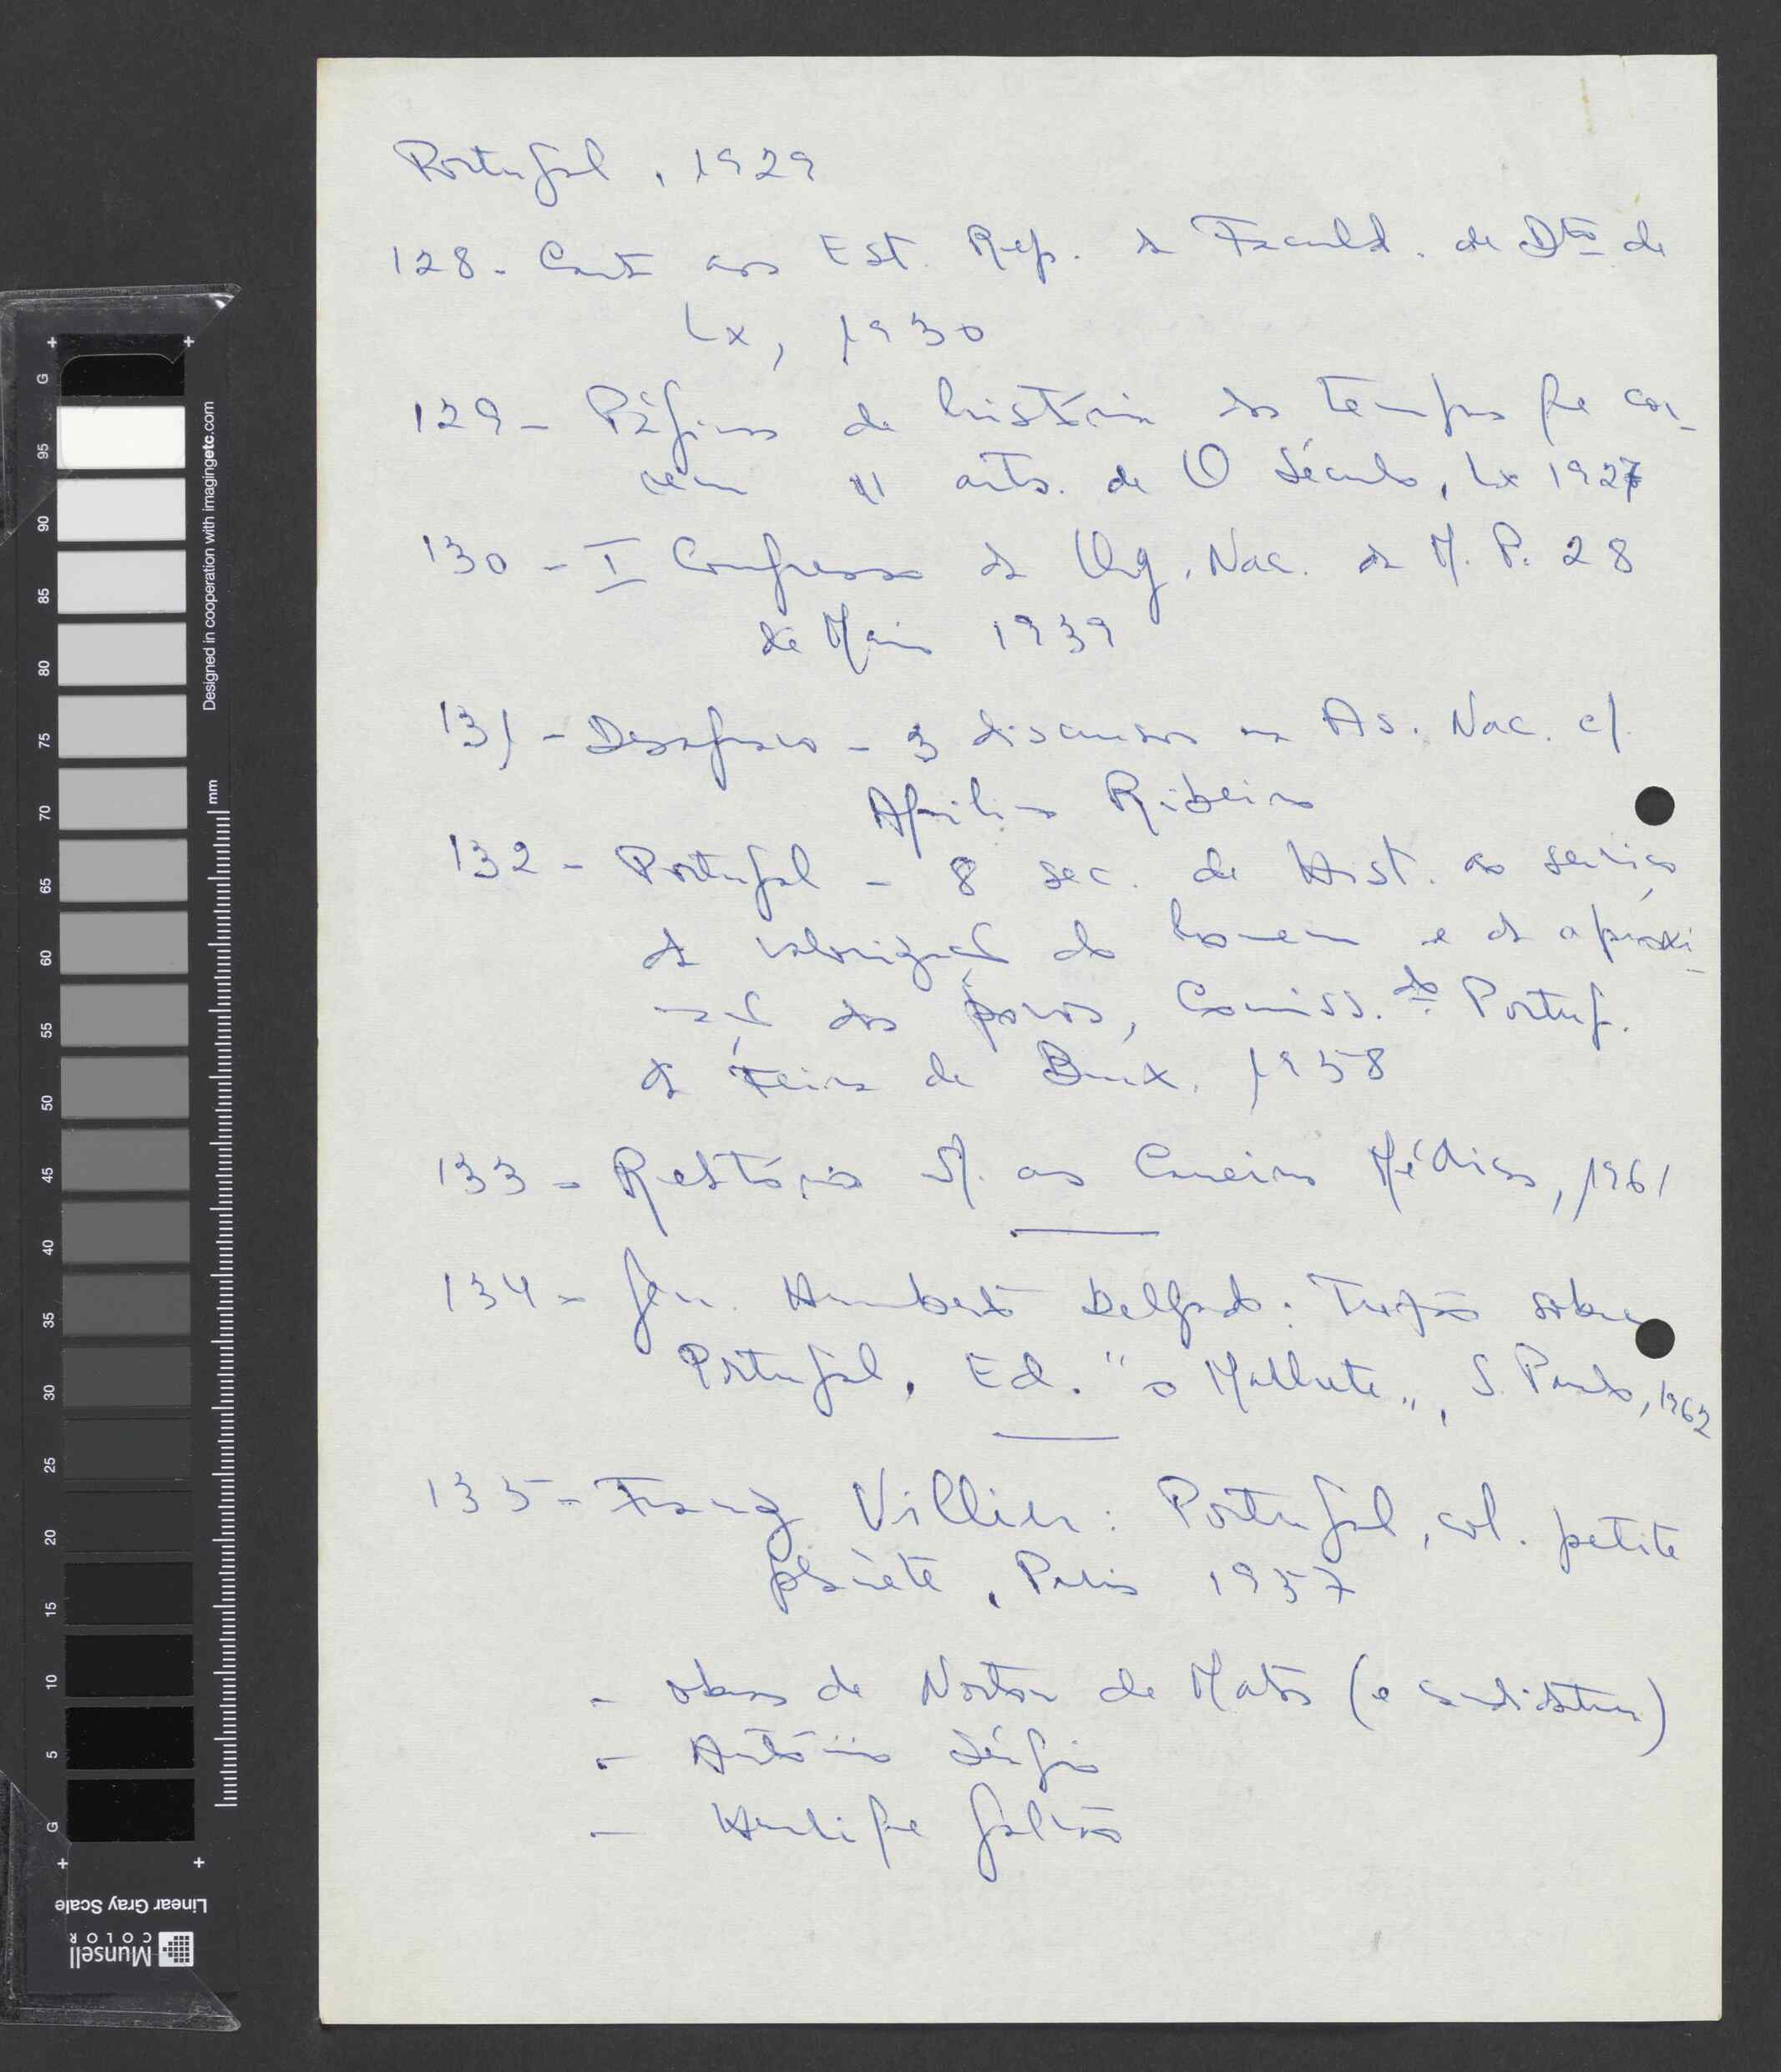 Portugal, 1929
128 - Carta aos Est. Rep. da Faculd. de Dto de
Lx, 1930
129 - Páginas de história dos tempos que cor-
rem 11 arts. de O Século, Lx 1927
130 - I Congresso da Org. Nac. da M. P. 28
de Maio 1939
131 - Desafronta - 3 discursos na As. Nac. c/.
Aquilino Ribeiro
132 - Portugal - 8 sec. de Hist. ao serviço
da valorização do homem e da aproxi-
mação dos povos, Comiss.do Portug.
da Feira de Brux. 1958
133 - Relatório s/. as Carreiras Médicas, 1961
134 - Gen. Humberto Delgado: Tufão sobre
Portugal, Ed. "o Malhete", S. Paulo, 1962
135 - Franz Villier: Portugal, col. petite
planète, Paris 1957
- obras de Norton de Matos (e candidatura)
- António Sérgio
- Henrique Galvão
G
95
90
85
80
75
70
65
60
55
50
45
40
35
30
25
20
15
10
5
G
Designed in cooperation with imagingetc.com
mm
Linear Gray Scale
Munsell
COLOR